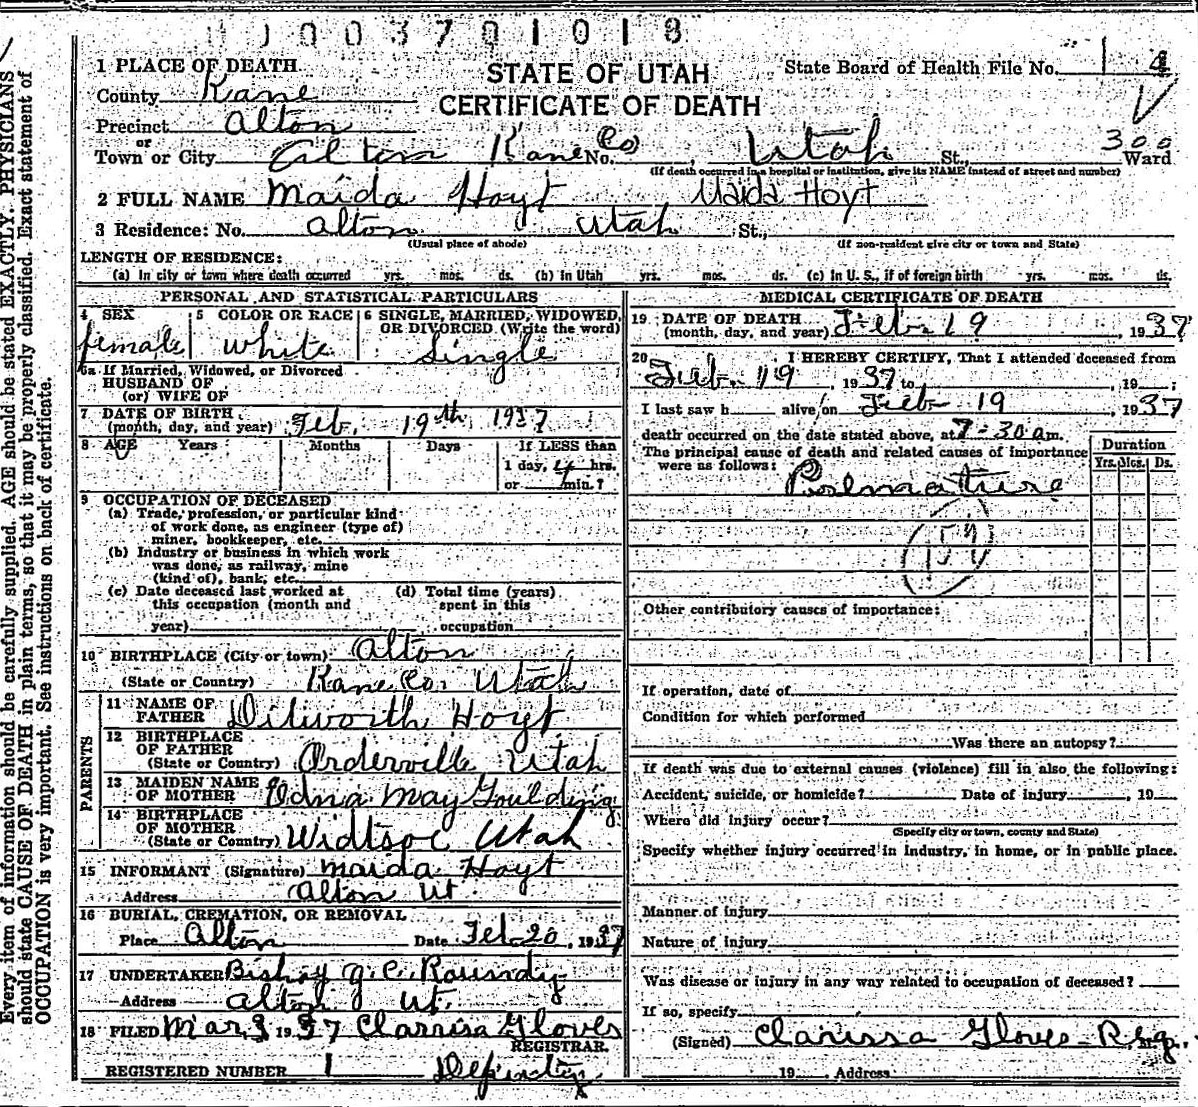 1003701018
1 PLACE OF DEATH
STATE OF UTAH
State Board of Health File No. 1 4
County Kane
CERTIFICATE OF DEATH
Precinct Alton
or
Town or City Alton Kane Co No. , Utah St., 300 Ward
(If death occurred in a hospital or institution, give its NAME instead of street and number)
2 FULL NAME Maida Hoyt Maida Hoyt
3 Residence: No. Alton Utah St.,
(Usual place of abode) (If non-resident give city or town and State)
LENGTH OF RESIDENCE:
(a) In city or town where death occurred yrs. mos. ds. (b) In Utah yrs. mos. ds. (c) In U. S., if of foreign birth yrs. mos. ds.
PERSONAL AND STATISTICAL PARTICULARS
4 SEX 5 COLOR OR RACE 6 SINGLE, MARRIED, WIDOWED,
OR DIVORCED (Write the word)
female white Single
6a If Married, Widowed, or Divorced
HUSBAND OF
(or) WIFE OF
7 DATE OF BIRTH
(month, day, and year) Feb. 19th 1937
8 AGE Years Months Days If LESS than
1 day, 4 hrs.
or min.?
9 OCCUPATION OF DECEASED
(a) Trade, profession, or particular kind
of work done, as engineer (type of)
miner, bookkeeper, etc.
(b) Industry or business in which work
was done, as railway, mine
(kind of), bank, etc.
(c) Date deceased last worked at (d) Total time (years)
this occupation (month and spent in this
year) occupation
10 BIRTHPLACE (City or town) Alton
(State or Country) Kane Co. Utah
PARENTS
11 NAME OF
FATHER Dilworth Hoyt
12 BIRTHPLACE
OF FATHER
(State or Country) Orderville Utah
13 MAIDEN NAME
OF MOTHER Edna May Goulding
14 BIRTHPLACE
OF MOTHER
(State or Country) Widtsoe Utah
15 INFORMANT (Signature) Maida Hoyt
Address Alton Ut.
16 BURIAL, CREMATION, OR REMOVAL
Place Alton Date Feb 20, 1937
17 UNDERTAKER Bishop J. C. Roundy
Address Alton Ut.
18 FILED Mar. 3 1937 Clarrisa Gloves
REGISTRAR.
REGISTERED NUMBER 1 Deputy
MEDICAL CERTIFICATE OF DEATH
19 DATE OF DEATH
(month, day, and year) Feb 19 1937
20 I HEREBY CERTIFY, That I attended deceased from
Feb. 19, 1937 to , 19 ;
I last saw h alive on Feb 19, 1937
death occurred on the date stated above, at 7-30 am.
The principal cause of death and related causes of importance
were as follows:
Duration
Yrs. Mos. Ds.
Premature
159
Other contributory causes of importance:
If operation, date of
Condition for which performed
Was there an autopsy?
If death was due to external causes (violence) fill in also the following:
Accident, suicide, or homicide? Date of injury , 19
Where did injury occur?
(Specify city or town, county and State)
Specify whether injury occurred in industry, in home, or in public place.
Manner of injury
Nature of injury
Was disease or injury in any way related to occupation of deceased?
If so, specify
(Signed) Clarissa Gloves Reg.
19 Address
Every item of information should be carefully supplied. AGE should be stated EXACTLY. PHYSICIANS
should state CAUSE OF DEATH in plain terms, so that it may be properly classified. Exact statement of
OCCUPATION is very important. See instructions on back of certificate.